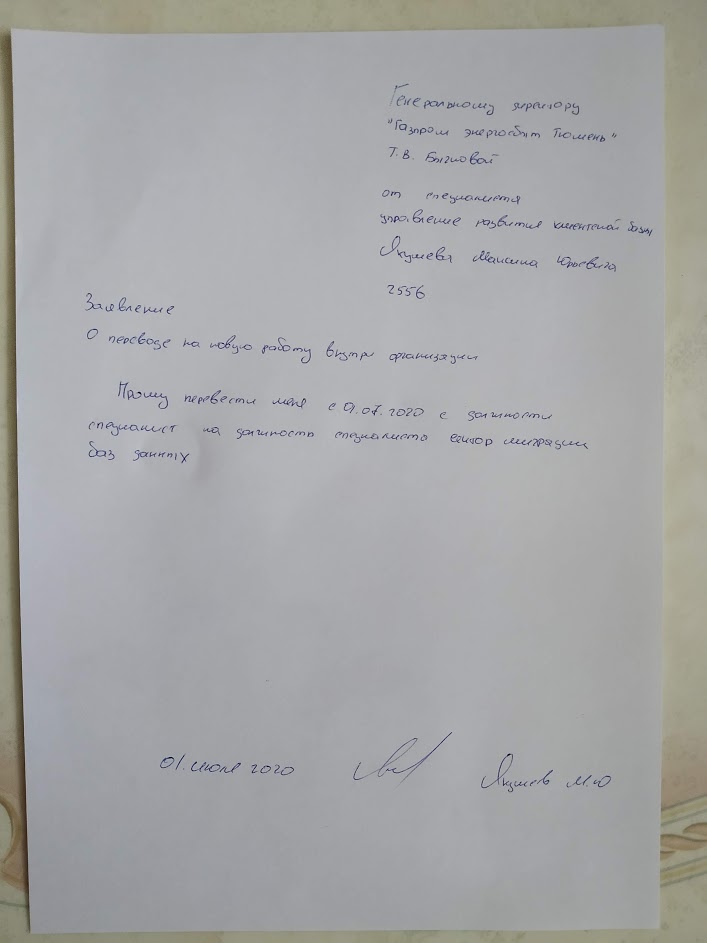 Генеральному директору
"Газпром энергосбыт Тюмень"
Т.В.
от специалиста
управление развития клиентской базы
Якушева Максима Юрьевича
2556
Заявление
О переводе на новую работу внутри организации
Прошу перевести меня с 01.07.2020 с должности
специалист на должность специалиста сектор миграции
баз данных
01. июля 2020 Якушев М.Ю